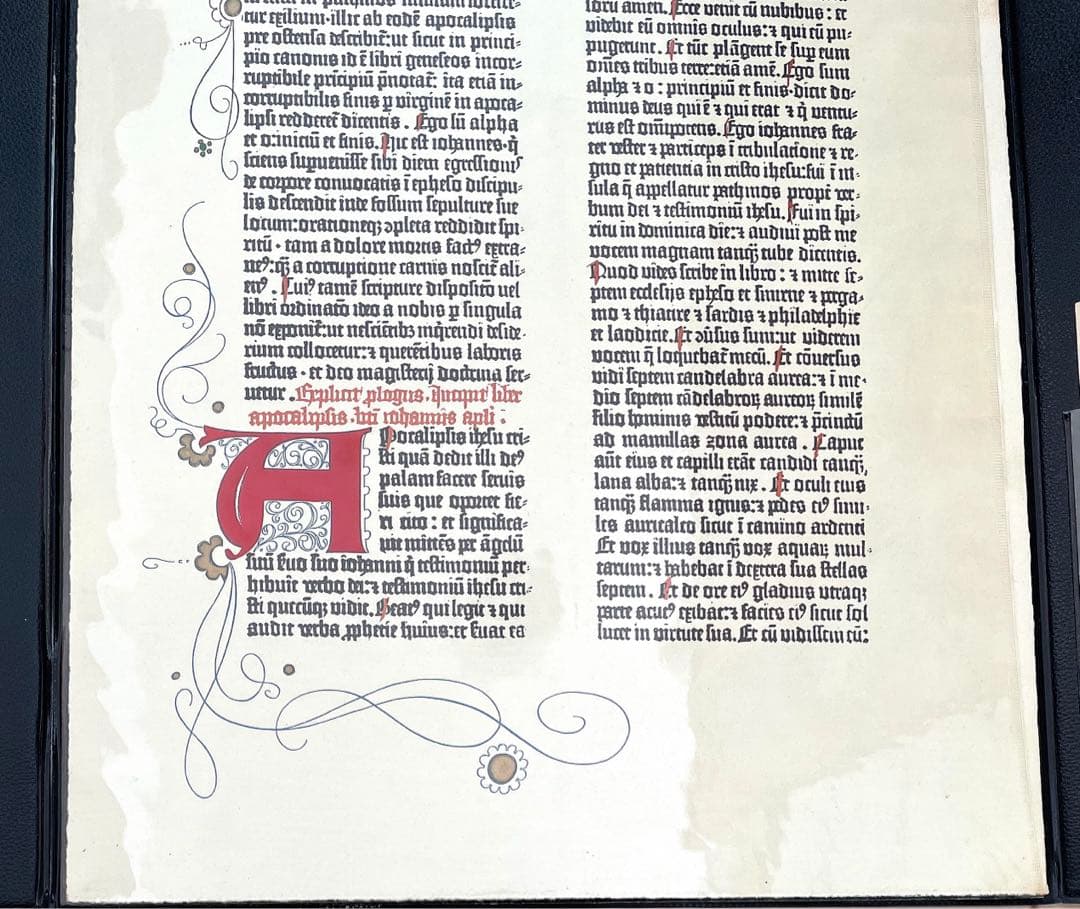 tur exilium·illic ab eodē apocalipsis
pre ostensa describit̄:ut sicut in princi-
pio canonis id ē libri geneseos incor-
ruptibile prīcipiū p̄notat̄: ita etiā in-
corruptibilis finis ꝑ virginē in apoca-
lipsi redderet̄ dicentis . Ego sū alpha
et o:iniciū et finis. Hic est iohannes·q̄
sciens supuenisse sibi diem egressionis
de corpore convocatis ī epheso discipu-
lis descendit inde fossum sepulture sue
locum:orationeq; ꝯpleta reddidit spi-
ritū · tam a dolore mortis factꝰ extra-
neꝰ:q̄ a corruptione carnis noscit̄ ali-
enꝰ . Cuiꝰ tamē scripture disposicō vel
libri ordinatō ideo a nobis ꝑ singula
nō exponit̄:ut nescientibꝫ inq̄rendi deside-
rium collocetur:⁊ querētibus laboris
fructus · et deo magisterij doctrina ser-
vetur . Explicit plogus. Incipit liber
apocalipsis bti iohannis apli ·
Apocalipsis ihesu cri-
sti quā dedit illi deꝰ
palam facere servis
suis que oportet fie-
ri cito : et significa-
vit mittēs per āgelū
suū suo suo iohanni q̄ testimoniū per-
hibuit verbo dei:⁊ testimoniū ihesu cri-
sti quecūq; vidit. Beatꝰ qui legit ⁊ qui
audit verba ꝓphetie huius:et suat ea
loru amen. Ecce venit cū nubibus : et
videbit eū omnis oculus:⁊ qui eū pu-
pugerunt. Et tūc plāgent se sup eum
oīnes tribus terre:etiā amē. Ego sum
alpha ⁊ o : principiū et finis·dicit do-
minus deus qui ē ⁊ qui erat ⁊ q̄ ventu-
rus est oīnipotens. Ego iohannes fra-
ter vester ⁊ particeps ī tribulacione ⁊ re-
gno et patientia in cristo ihesu:fui ī in-
sula q̄ appellatur pathmos propt̄ ver-
bum dei ⁊ testimoniū ihesu. Fui in spi-
ritu in dominica die:⁊ audivi post me
vocem magnam tanq̄ tube dicentis.
Quod vides scribe in libro : ⁊ mitte se-
ptem ecclesijs epheso et smirne ⁊ perga-
mo ⁊ thiatire ⁊ sardis ⁊ philadelphie
et laodicie. Et ꝯversus sum:ut viderem
vocem q̄ loquebat̄ mecū. Et cōversus
vidi septem candelabra aurea:⁊ ī me-
dio septem cādelabroꝝ aureoꝝ similē
filio hominis vestitū podere:⁊ p̄cinctū
ad mamillas zona aurea . Caput
aūt eius et capilli erāt candidi tanq̄
lana alba:⁊ tanq̄ nix . Et oculi eius
tanq̄ flamma ignis:⁊ pedes eiꝰ simi-
les auricalco sicut ī camino ardenti
Et vox illius tanq̄ vox aquaꝝ mul-
tarum:⁊ habebat ī dextera sua stellas
septem . Et de ore eiꝰ gladius utraq;
parte acutꝰ exibat:⁊ facies eiꝰ sicut sol
lucet in virtute sua. Et cū vidissem eū: